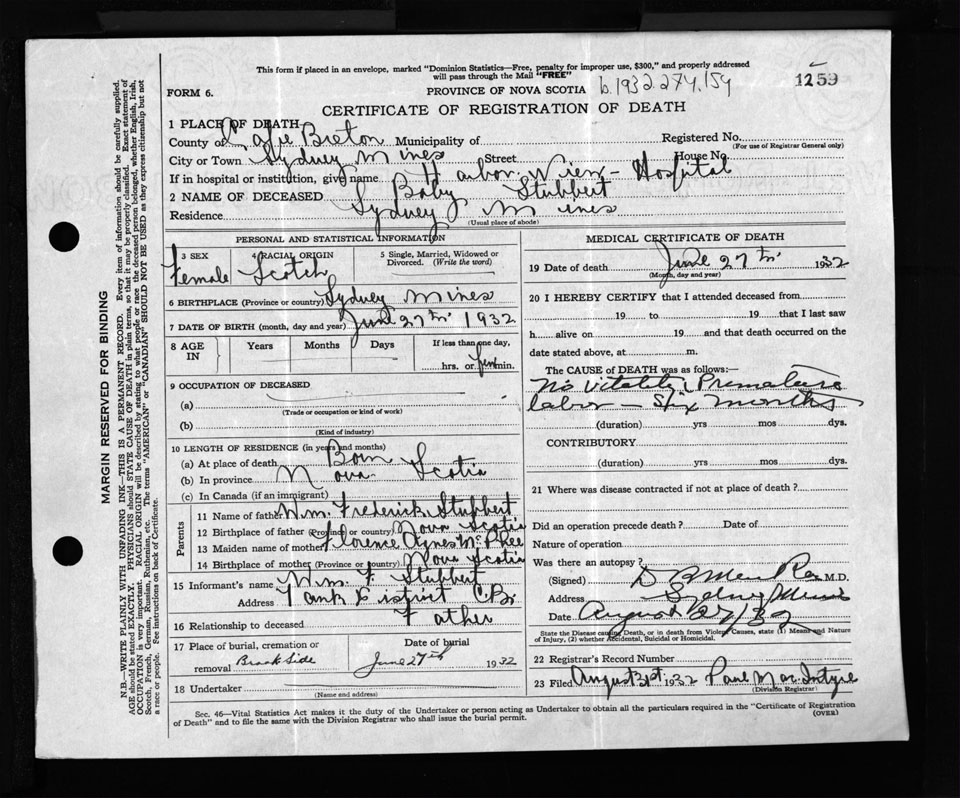 This form if placed in an envelope, marked "Dominion Statistics—Free, penalty for improper use, $300," and properly addressed
will pass through the Mail "FREE"
FORM 6. PROVINCE OF NOVA SCOTIA b.1932.274.159 1259
CERTIFICATE OF REGISTRATION OF DEATH
1 PLACE OF DEATH—
County of Cape Breton Municipality of Registered No.
(For use of Registrar General only)
City or Town Sydney Mines Street House No.
If in hospital or institution, give name Harbor View - Hospital
2 NAME OF DECEASED Baby Stubbert
Residence Sydney Mines
(Usual place of abode)
PERSONAL AND STATISTICAL INFORMATION
3 SEX 4 RACIAL ORIGIN 5 Single, Married, Widowed or
Divorced. (Write the word)
Female Scotch
6 BIRTHPLACE (Province or country) Sydney Mines
7 DATE OF BIRTH (month, day and year) June 27th 1932
8 AGE IN Years Months Days If less than one day,
hrs. or few min.
9 OCCUPATION OF DECEASED
(a)
(Trade or occupation or kind of work)
(b)
(Kind of industry)
10 LENGTH OF RESIDENCE (in years and months)
(a) At place of death Born
(b) In province Nova Scotia
(c) In Canada (if an immigrant)
Parents
11 Name of father Wm. Frederick Stubbert
12 Birthplace of father (Province or country) Nova Scotia
13 Maiden name of mother Florence Agnes McPhee
14 Birthplace of mother (Province or country) Nova Scotia
15 Informant's name Wm. F. Stubbert
Address Tank District C.B.
16 Relationship to deceased Father
17 Place of burial, cremation or removal Brook Side
Date of burial June 27th 1932
18 Undertaker
(Name and address)
MEDICAL CERTIFICATE OF DEATH
19 Date of death June 27th 1932
(Month, day and year)
20 I HEREBY CERTIFY that I attended deceased from
19 to 19 that I last saw
h alive on 19 and that death occurred on the
date stated above, at m.
The CAUSE of DEATH was as follows:—
No vitality, Premature
labor — Six months
(duration) yrs mos dys.
CONTRIBUTORY
(duration) yrs mos dys.
21 Where was disease contracted if not at place of death?
Did an operation precede death? Date of
Nature of operation
Was there an autopsy?
(Signed) M.D.
Address Sydney Mines
Date August 27/32
State the Disease causing Death, or in death from Violent Causes, state (1) Means and Nature
of Injury, (2) whether Accidental, Suicidal or Homicidal.
22 Registrar's Record Number
23 Filed August 31st 1932 MacIntyre
(Division Registrar)
Sec. 46—Vital Statistics Act makes it the duty of the Undertaker or person acting as Undertaker to obtain all the particulars required in the "Certificate of Registration
of Death" and to file the same with the Division Registrar who shall issue the burial permit.
(OVER)
MARGIN RESERVED FOR BINDING
N.B.—WRITE PLAINLY WITH UNFADING INK—THIS IS A PERMANENT RECORD. Every item of information should be carefully supplied.
AGE should be stated EXACTLY. PHYSICIANS should STATE CAUSE OF DEATH in plain terms, so that it may be properly classified. Exact statement of
OCCUPATION is very important. RACIAL ORIGIN will be described by stating to what people or race the deceased person belonged, whether English, Irish,
Scotch, French, German, Russian, Ruthenian, etc. The terms "AMERICAN" or "CANADIAN" SHOULD NOT BE USED as they express citizenship but not
a race or people. See instructions on back of Certificate.